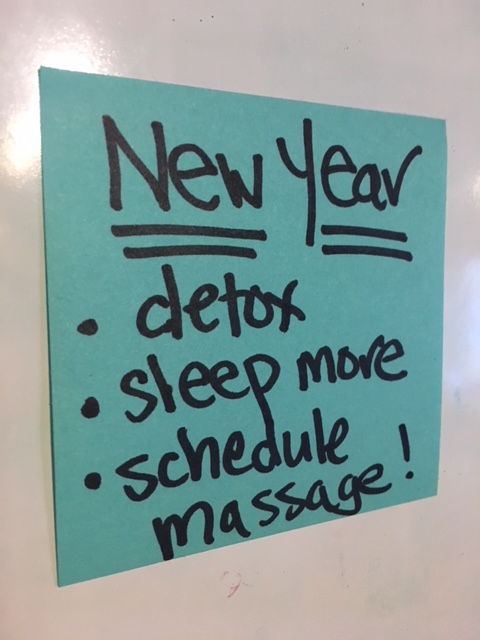 New Year
• detox
• sleep more
• schedule
massage!